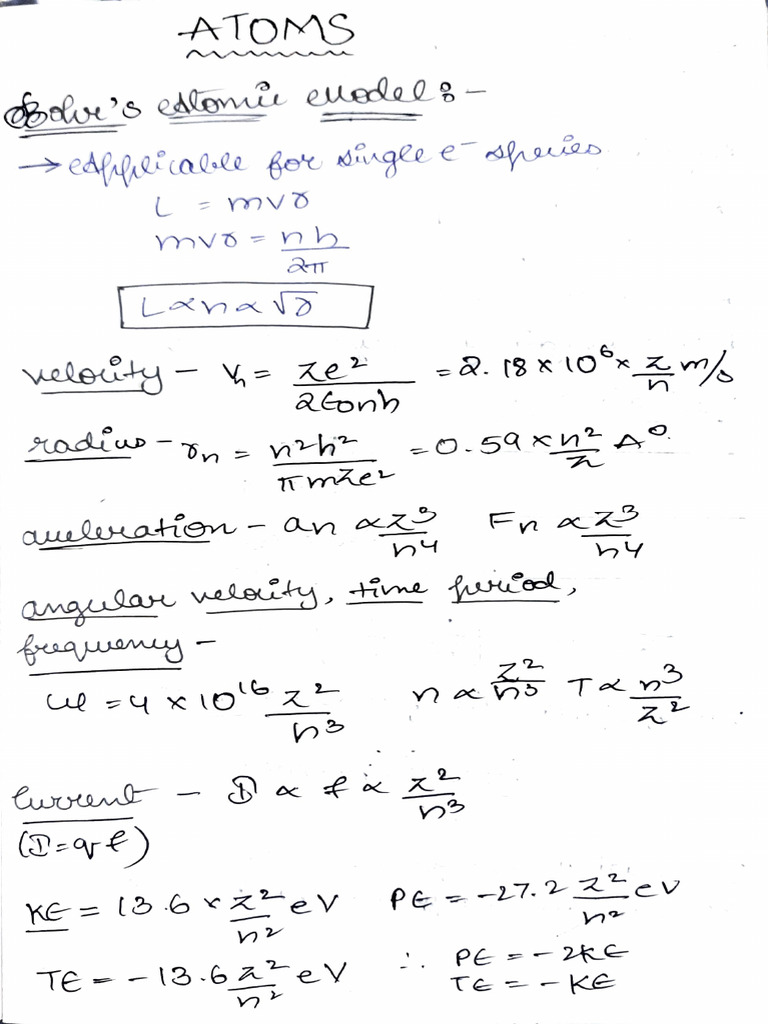 ATOMS
Bohr's Atomic Model :-
→ Applicable for single e⁻ species
L = mvr
mvr = nh/2π
L ∝ n ∝ √r
velocity - Vn = ze²/2ε0nh = 2.18 × 10⁶ × z/n m/s
radius - rn = n²h²/πmze² = 0.59 × n²/z A°
acceleration - an ∝ z³/n⁴ Fn ∝ z³/n⁴
angular velocity, time period,
frequency -
ω = 4 × 10¹⁶ z²/n³ n ∝ z²/n³ T ∝ n³/z²
Current - I ∝ f ∝ z²/n³
(I = qf)
KE = 13.6 × z²/n² eV PE = -27.2 z²/n² eV
TE = -13.6 z²/n² eV ∴ PE = -2KE
TE = -KE